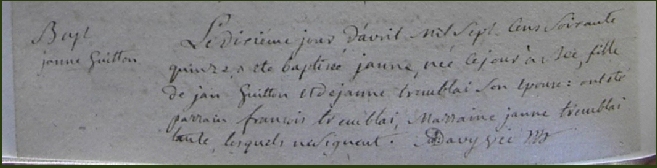 Bapt
janne Guitton
Le dixiéme jour d'avril Mil Sept Cens Soixante
quinze, a eté baptisée janne, née le jour d'hié, fille
de jan Guitton et de janne tremblai Son Epouse : ont été
parrain francois tremblai, Marraine janne tremblai
tante, lesquels ne Signent. Davy